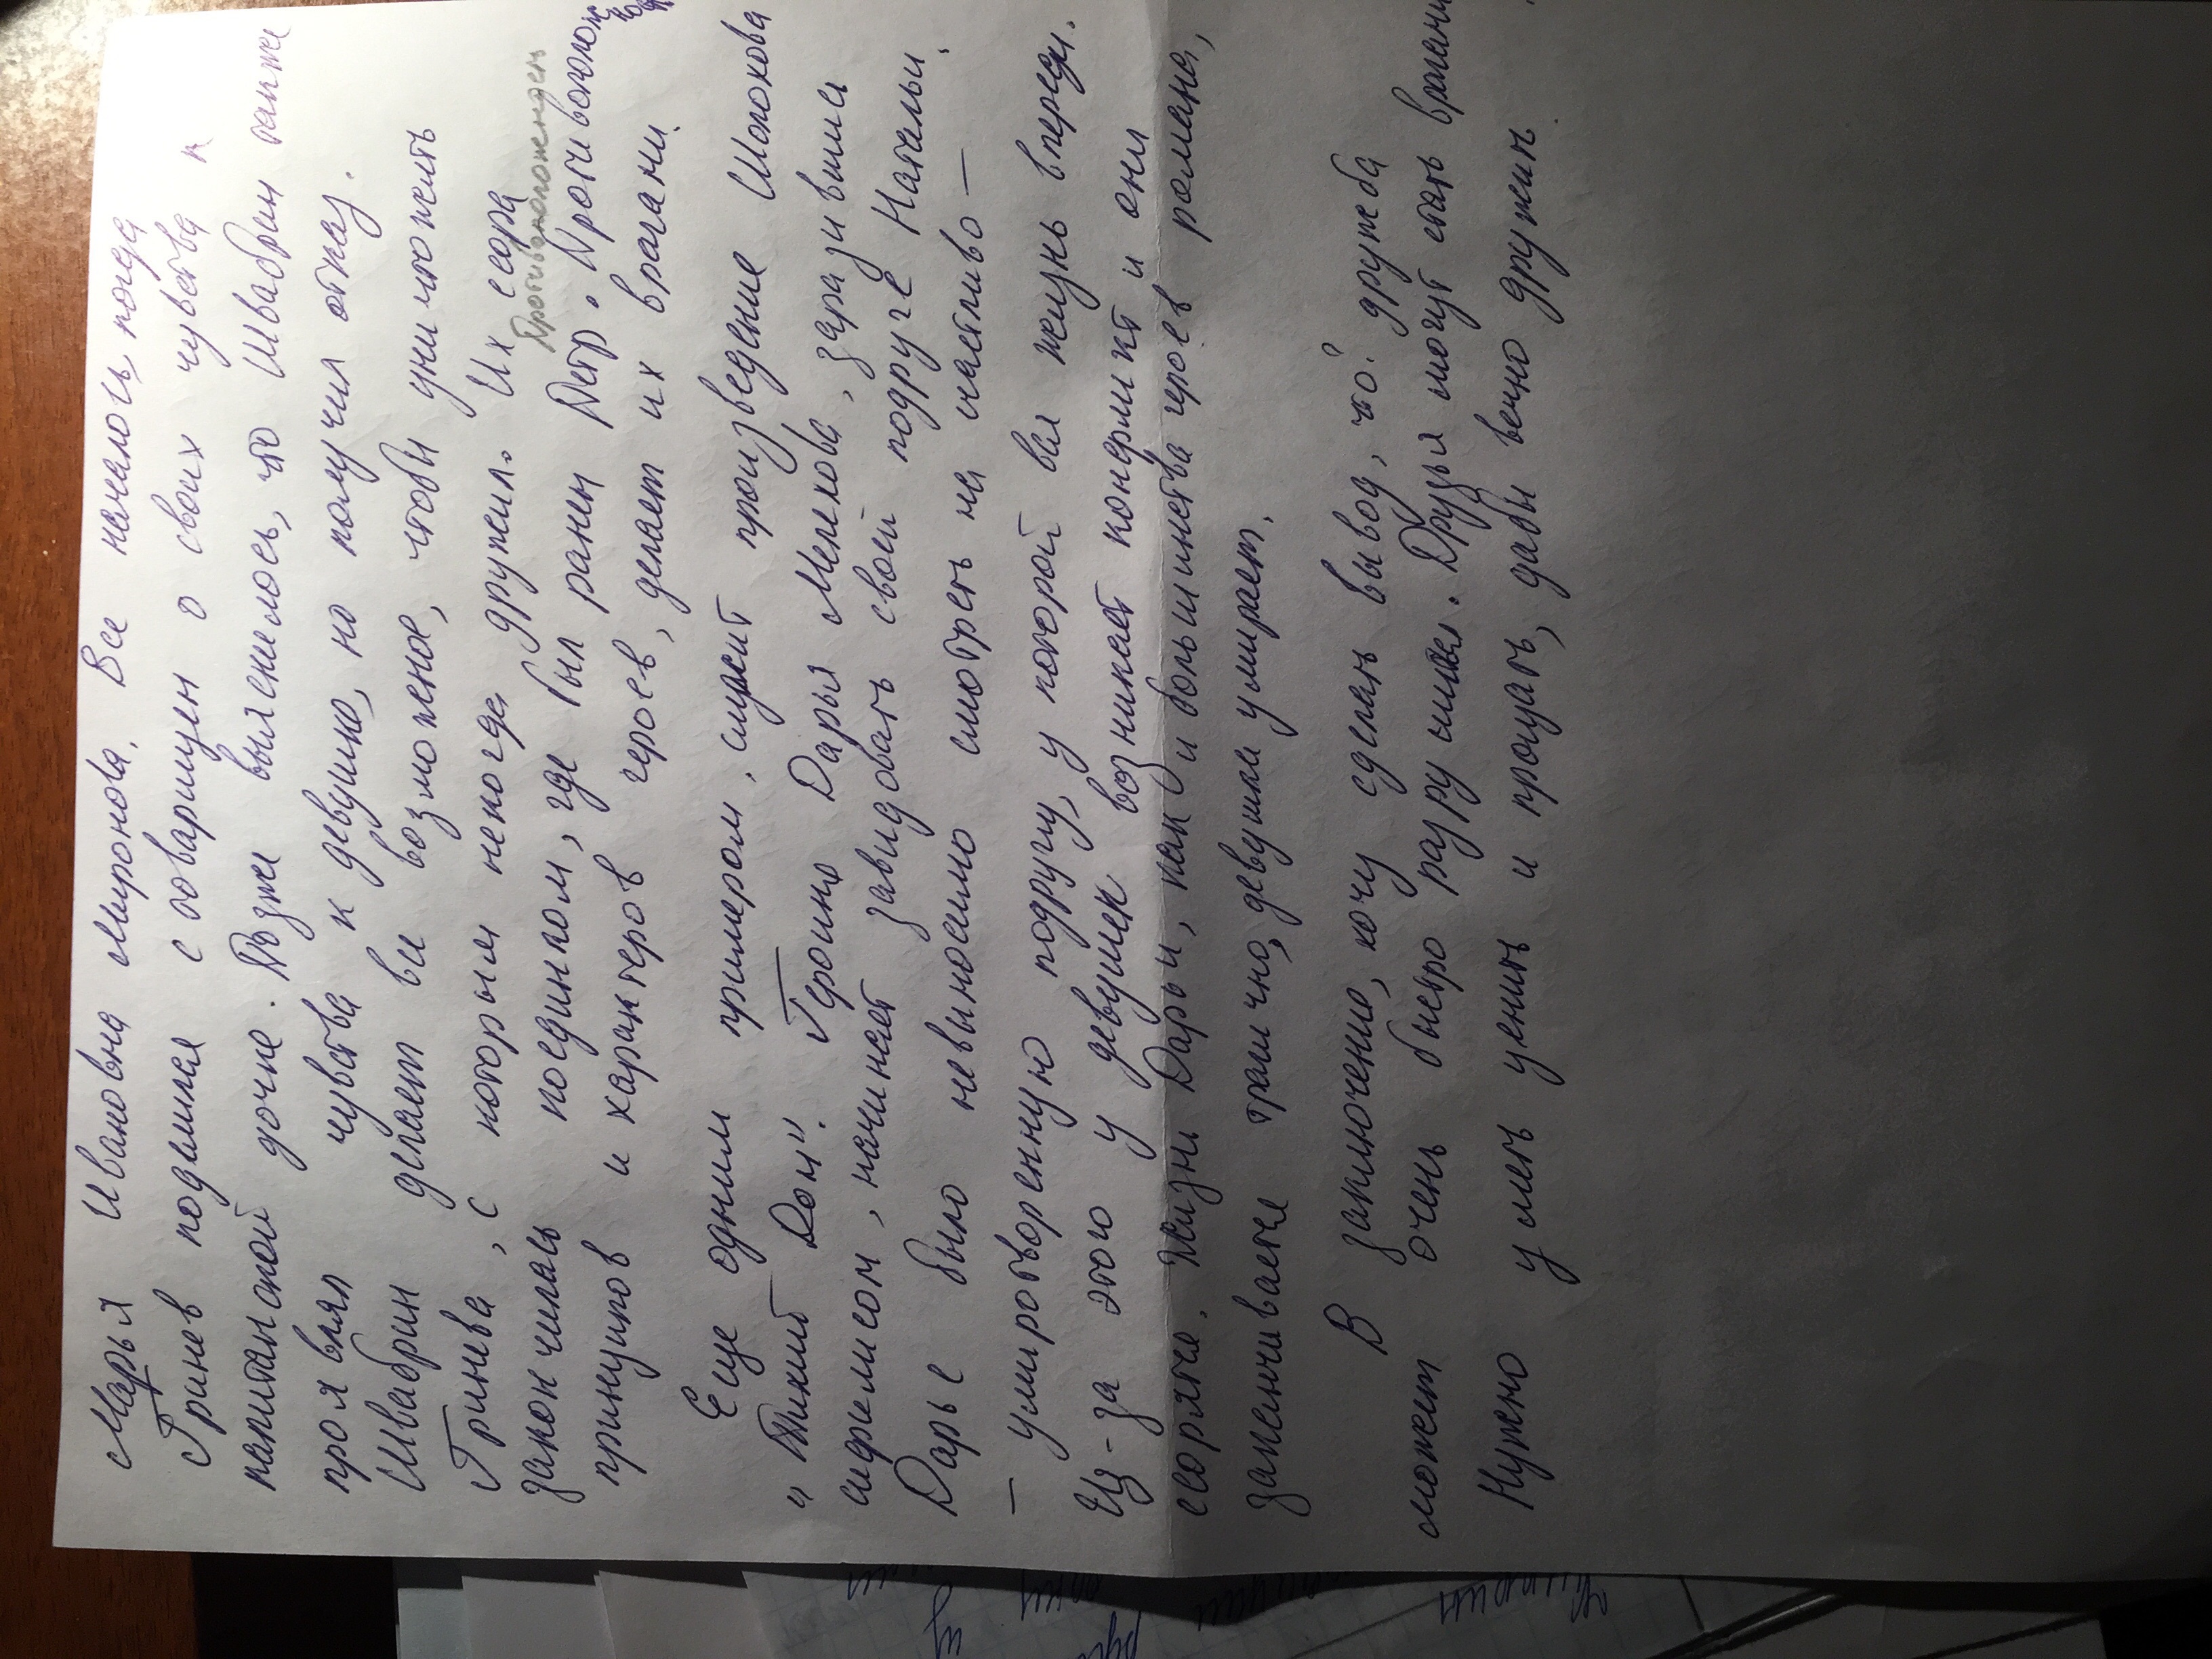 Марья Ивановна Миронова. Все началось, когда
Гринев поделился с товарищем о своих чувства к
капитанской дочке. Позже выяснилось, что Швабрин также
проявлял чувства к девушке, но получил отказ.
Швабрин делает все возможное, чтобы уничтожить
Гринева, с которым некогда дружил. Их ссора
Противоположность
закончилась поединком, где был ранен Петр. Противополож
принципов и характеров героев, делает их врагами.
Еще одним примером, служит произведение Шолохова
"Тихий Дон". Героиня Дарья Мелехова, заразившись
сифилисом, начинает завидовать своей подруге Натальи.
Дарье было невыносимо смотреть на счастливо–
– умиротворенную подругу, у которой вся жизнь впереди.
Из-за этого у девушек возникает конфликт и они
ссорятся. Жизнь Дарьи, как и большинства героев романа,
заканчивается трагично, девушка умирает.
В заключение, хочу сделать вывод, что: дружба
может очень быстро разрушится. Друзья могут стать врагами.
Нужно уметь ценить и прощать, дабы вечно дружить